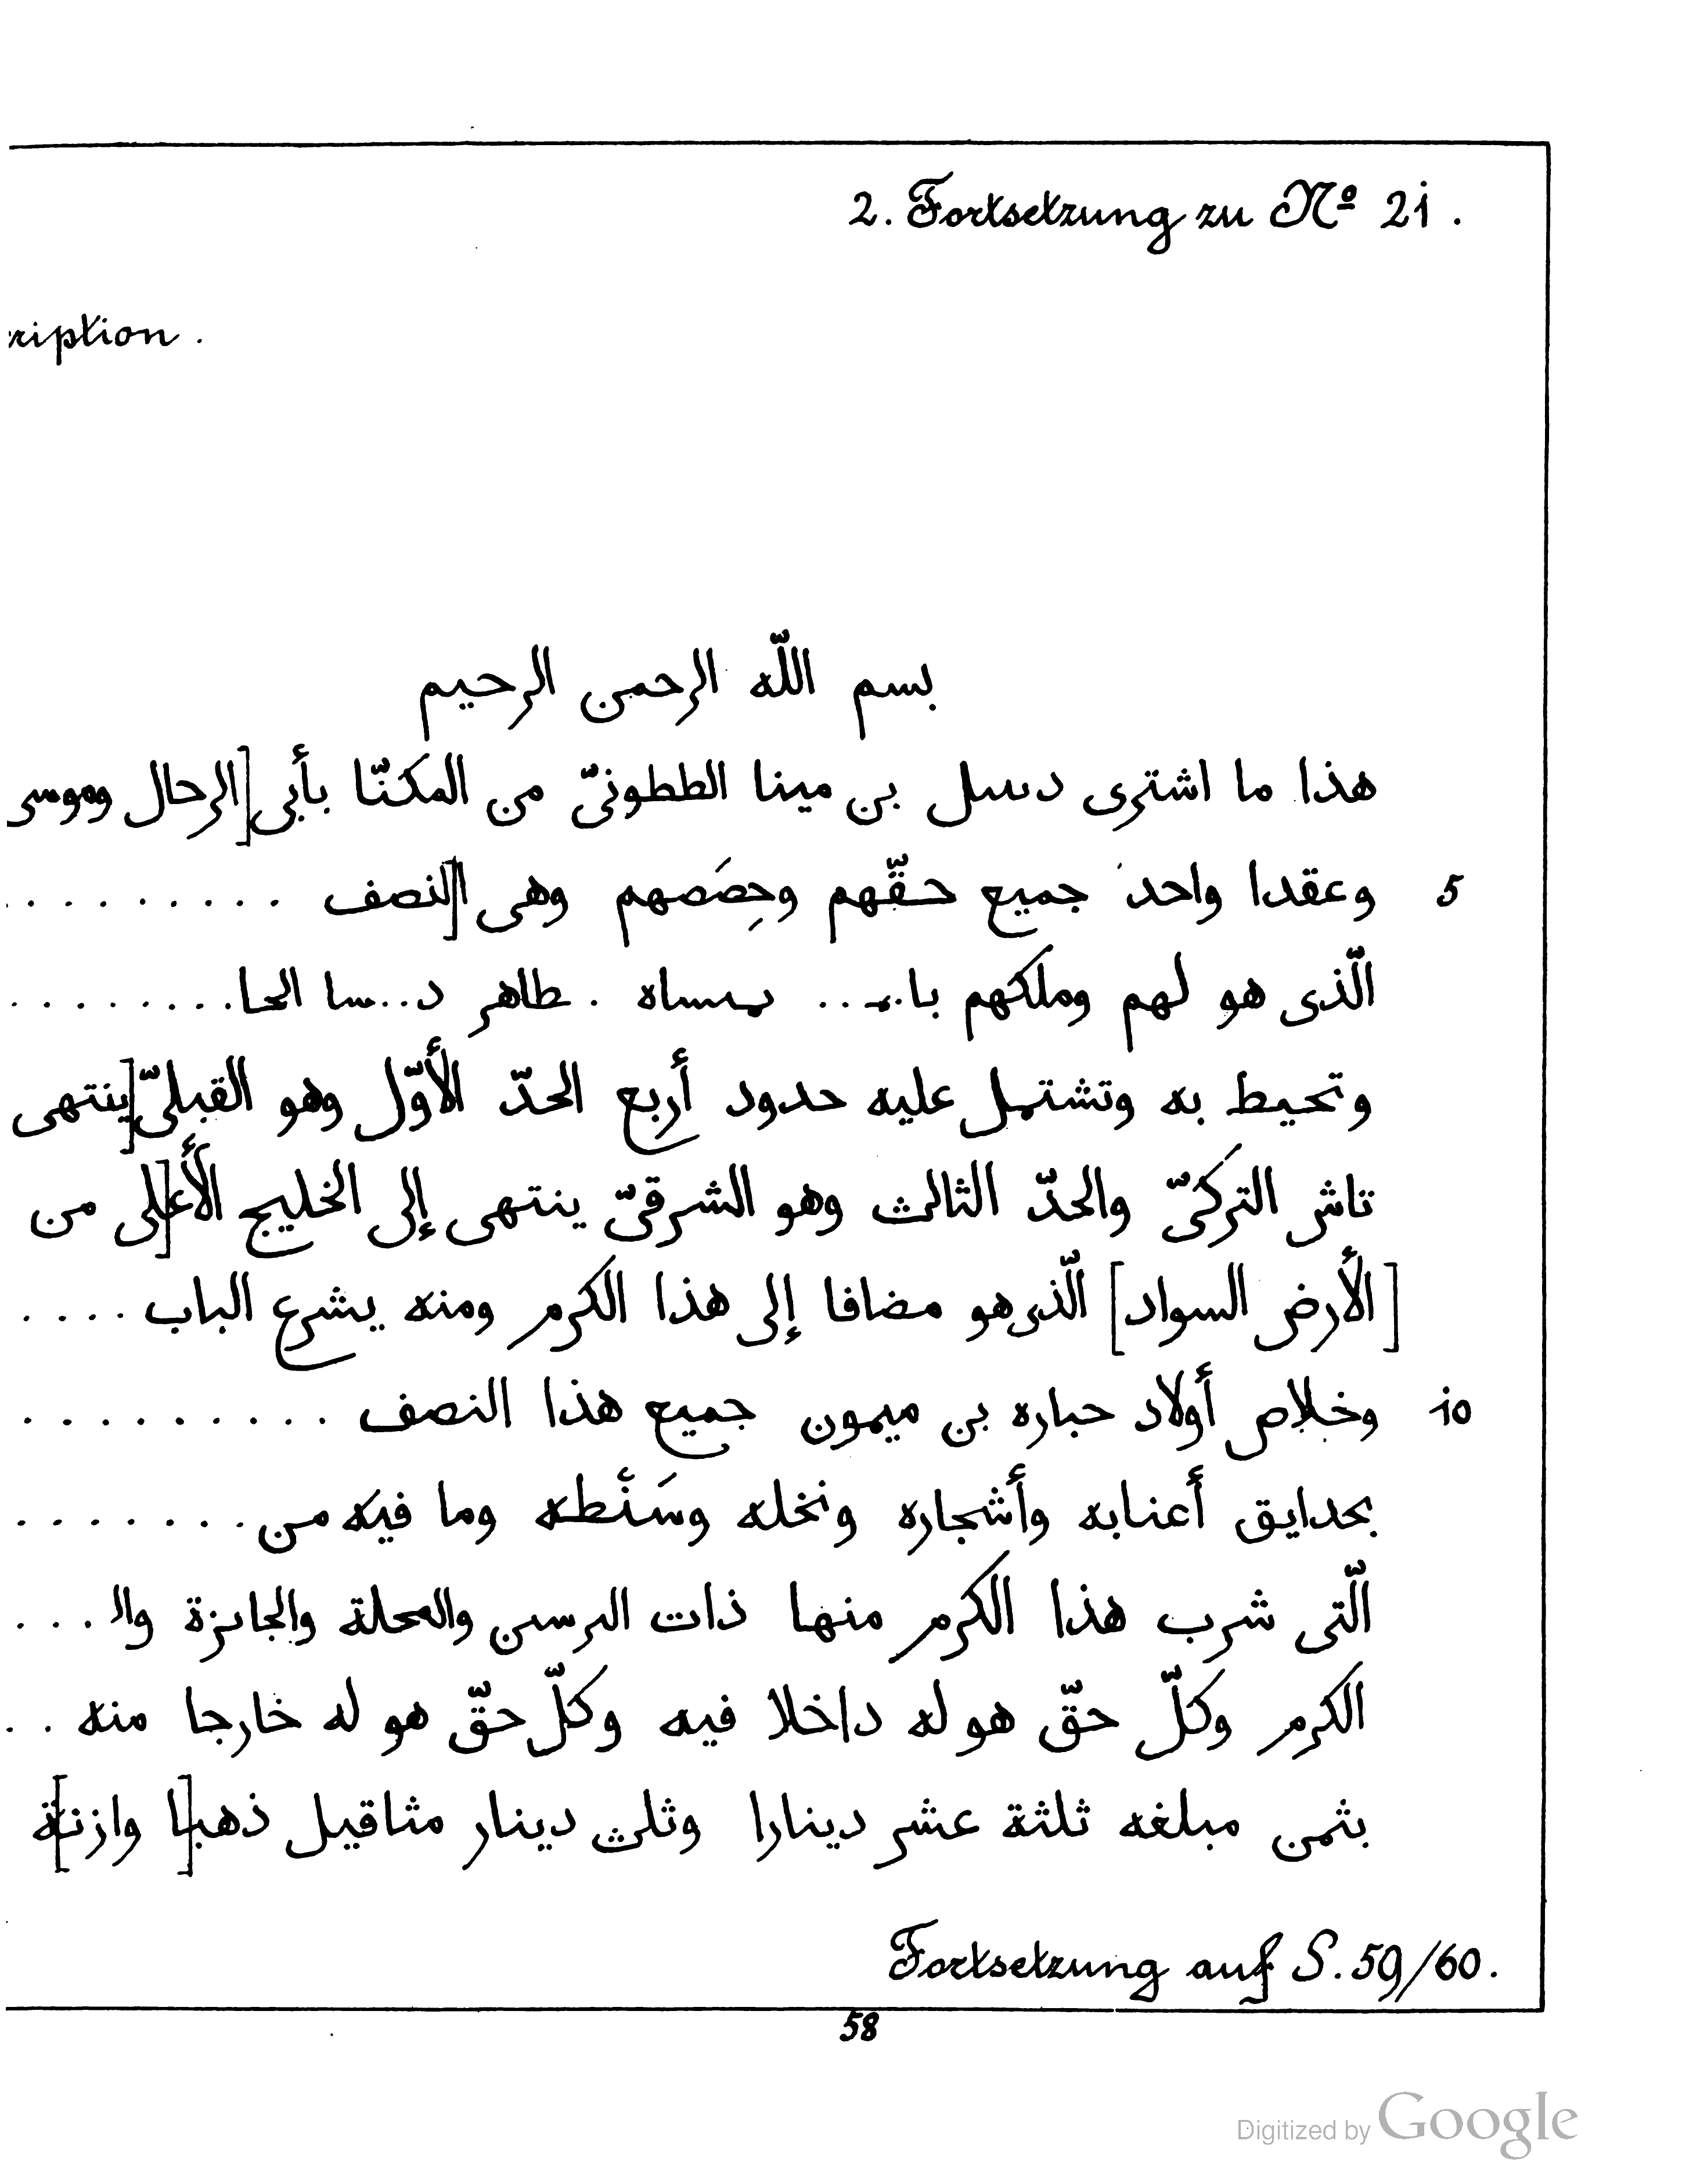 2. Fortsetzung zu Nº 21.
ription.
بسم اللّه الرحمن الرحيم
هذا ما اشترى دسل بن مينا الططونىّ من المكنّا بأبى [الرحال وموسى
5 وعقدا واحد جميع حقّهم وحِصَصهم وهى ا[لنصف ..........
الّذى هو لهم وملكهم با... طاهر د...سا الحا.........
وتحيط به وتشتمل عليه حدود أربع الحدّ الأوّل وهو القبلىّ [ينتهى
تاش التركىّ والحدّ الثالث وهو الشرقىّ ينتهى إلى الخليج الأع[لى من
[الأرض السواد] الّذى هو مضافا إلى هذا الكرم ومنه يشرع الباب ....
10 وخلاص أولاد حباره بن ميمون جميع هذا النصف ..........
بحدايق أعنابه وأشجاره ونخله وسَنْطه وما فيه من ........
الّتى شرب هذا الكرم منها ذات البرسن والمحلة والجائزة والـ ...
الكرم وكلّ حقّ هو له داخلا فيه وكلّ حقّ هو له خارجا منه ..
بثمن مبلغه ثلثة عشر دينارا وثلث دينار مثاقيل ذهب[ا وازن]ة
Fortsetzung auf S. 59/60.
58
Digitized by Google